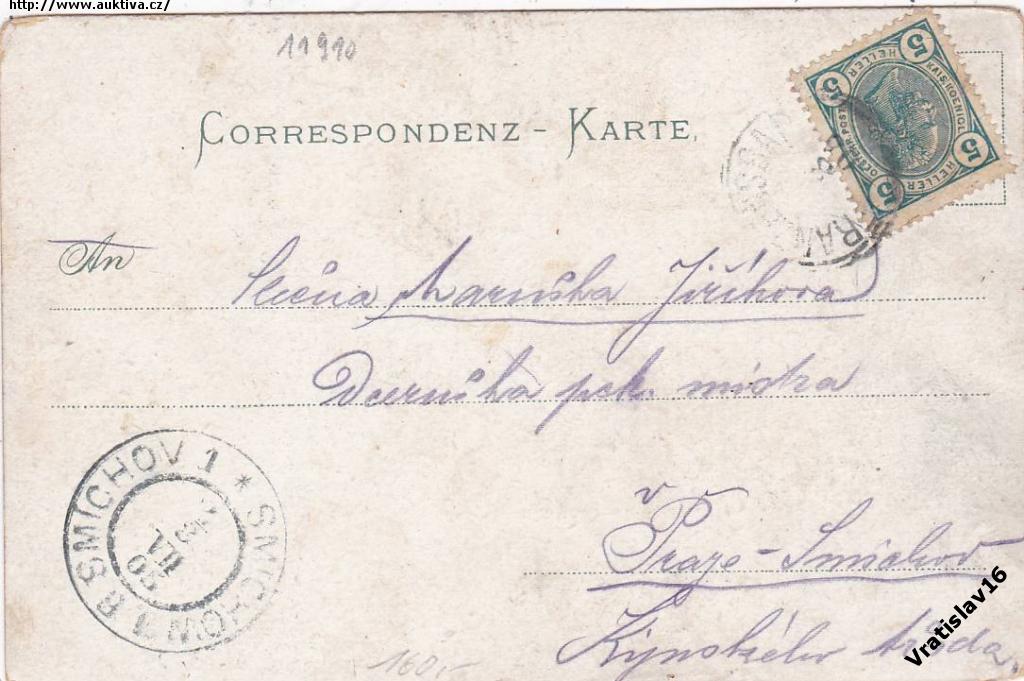 http://www.auktiva.cz/
11910
CORRESPONDENZ - KARTE.
5 HELLER 5 KAIS. KOENIGL. 5 HELLER 5 OESTERR. POST
An
Slečna Maruška Jiříkova
Dceruška pek. mistra
v
Praze - Smichov
Kynského třída
SMÍCHOV 1 * SMICHOW 1
VII
05
160,-
Vratislav16